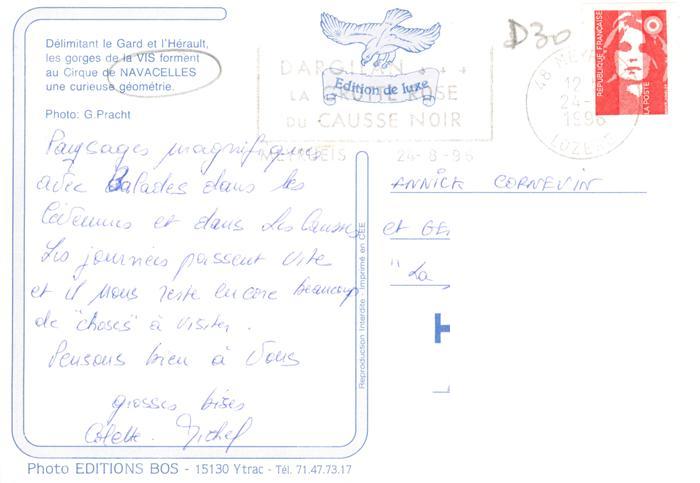 Délimitant le Gard et l'Hérault,
les gorges de la VIS forment
au Cirque de NAVACELLES
une curieuse géométrie.
Photo: G.Pracht
Paysages magnifiques
avec Balades dans les
Cévennes et dans Les Causses
Les journées passent vite
et il nous reste encore beaucoup
de "choses" à visiter.
Pensons bien à Vous
grosses bises
Colette. Michel
Photo EDITIONS BOS - 15130 Ytrac - Tél. 71.47.73.17
Reproduction Interdite - Imprimé en CEE
Edition de luxe
DARGILAN
LA GROTTE ROSE
DU CAUSSE NOIR
MEYRUEIS 24-8-96
D30
48 MEY
12
24-
1996
LOZERE
REPUBLIQUE FRANÇAISE
LA POSTE
ANNICK CORNEVIN
et GE
"La